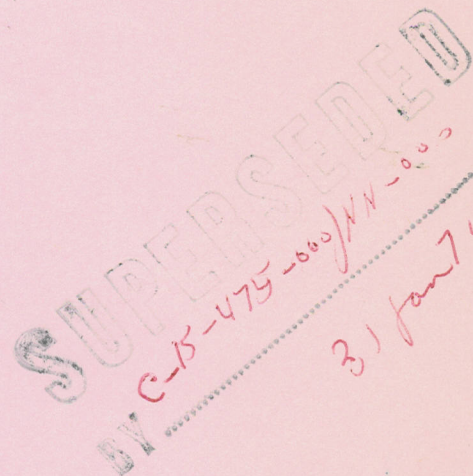 SUPERSEDED
BY C-15-475-000/NN-000
31 Jan 7